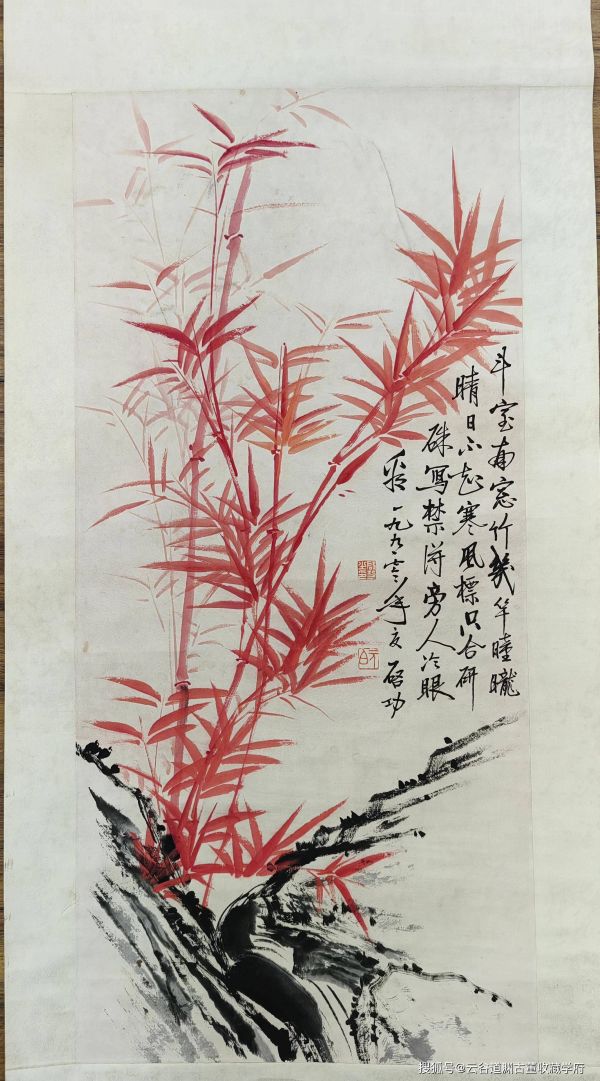 斗室南窓竹幾竿曈曨
晴日不知寒風標只合研
硃寫禁得旁人冷眼
看 一九九年夏 启功
搜狐号@云谷道渊古董收藏学府